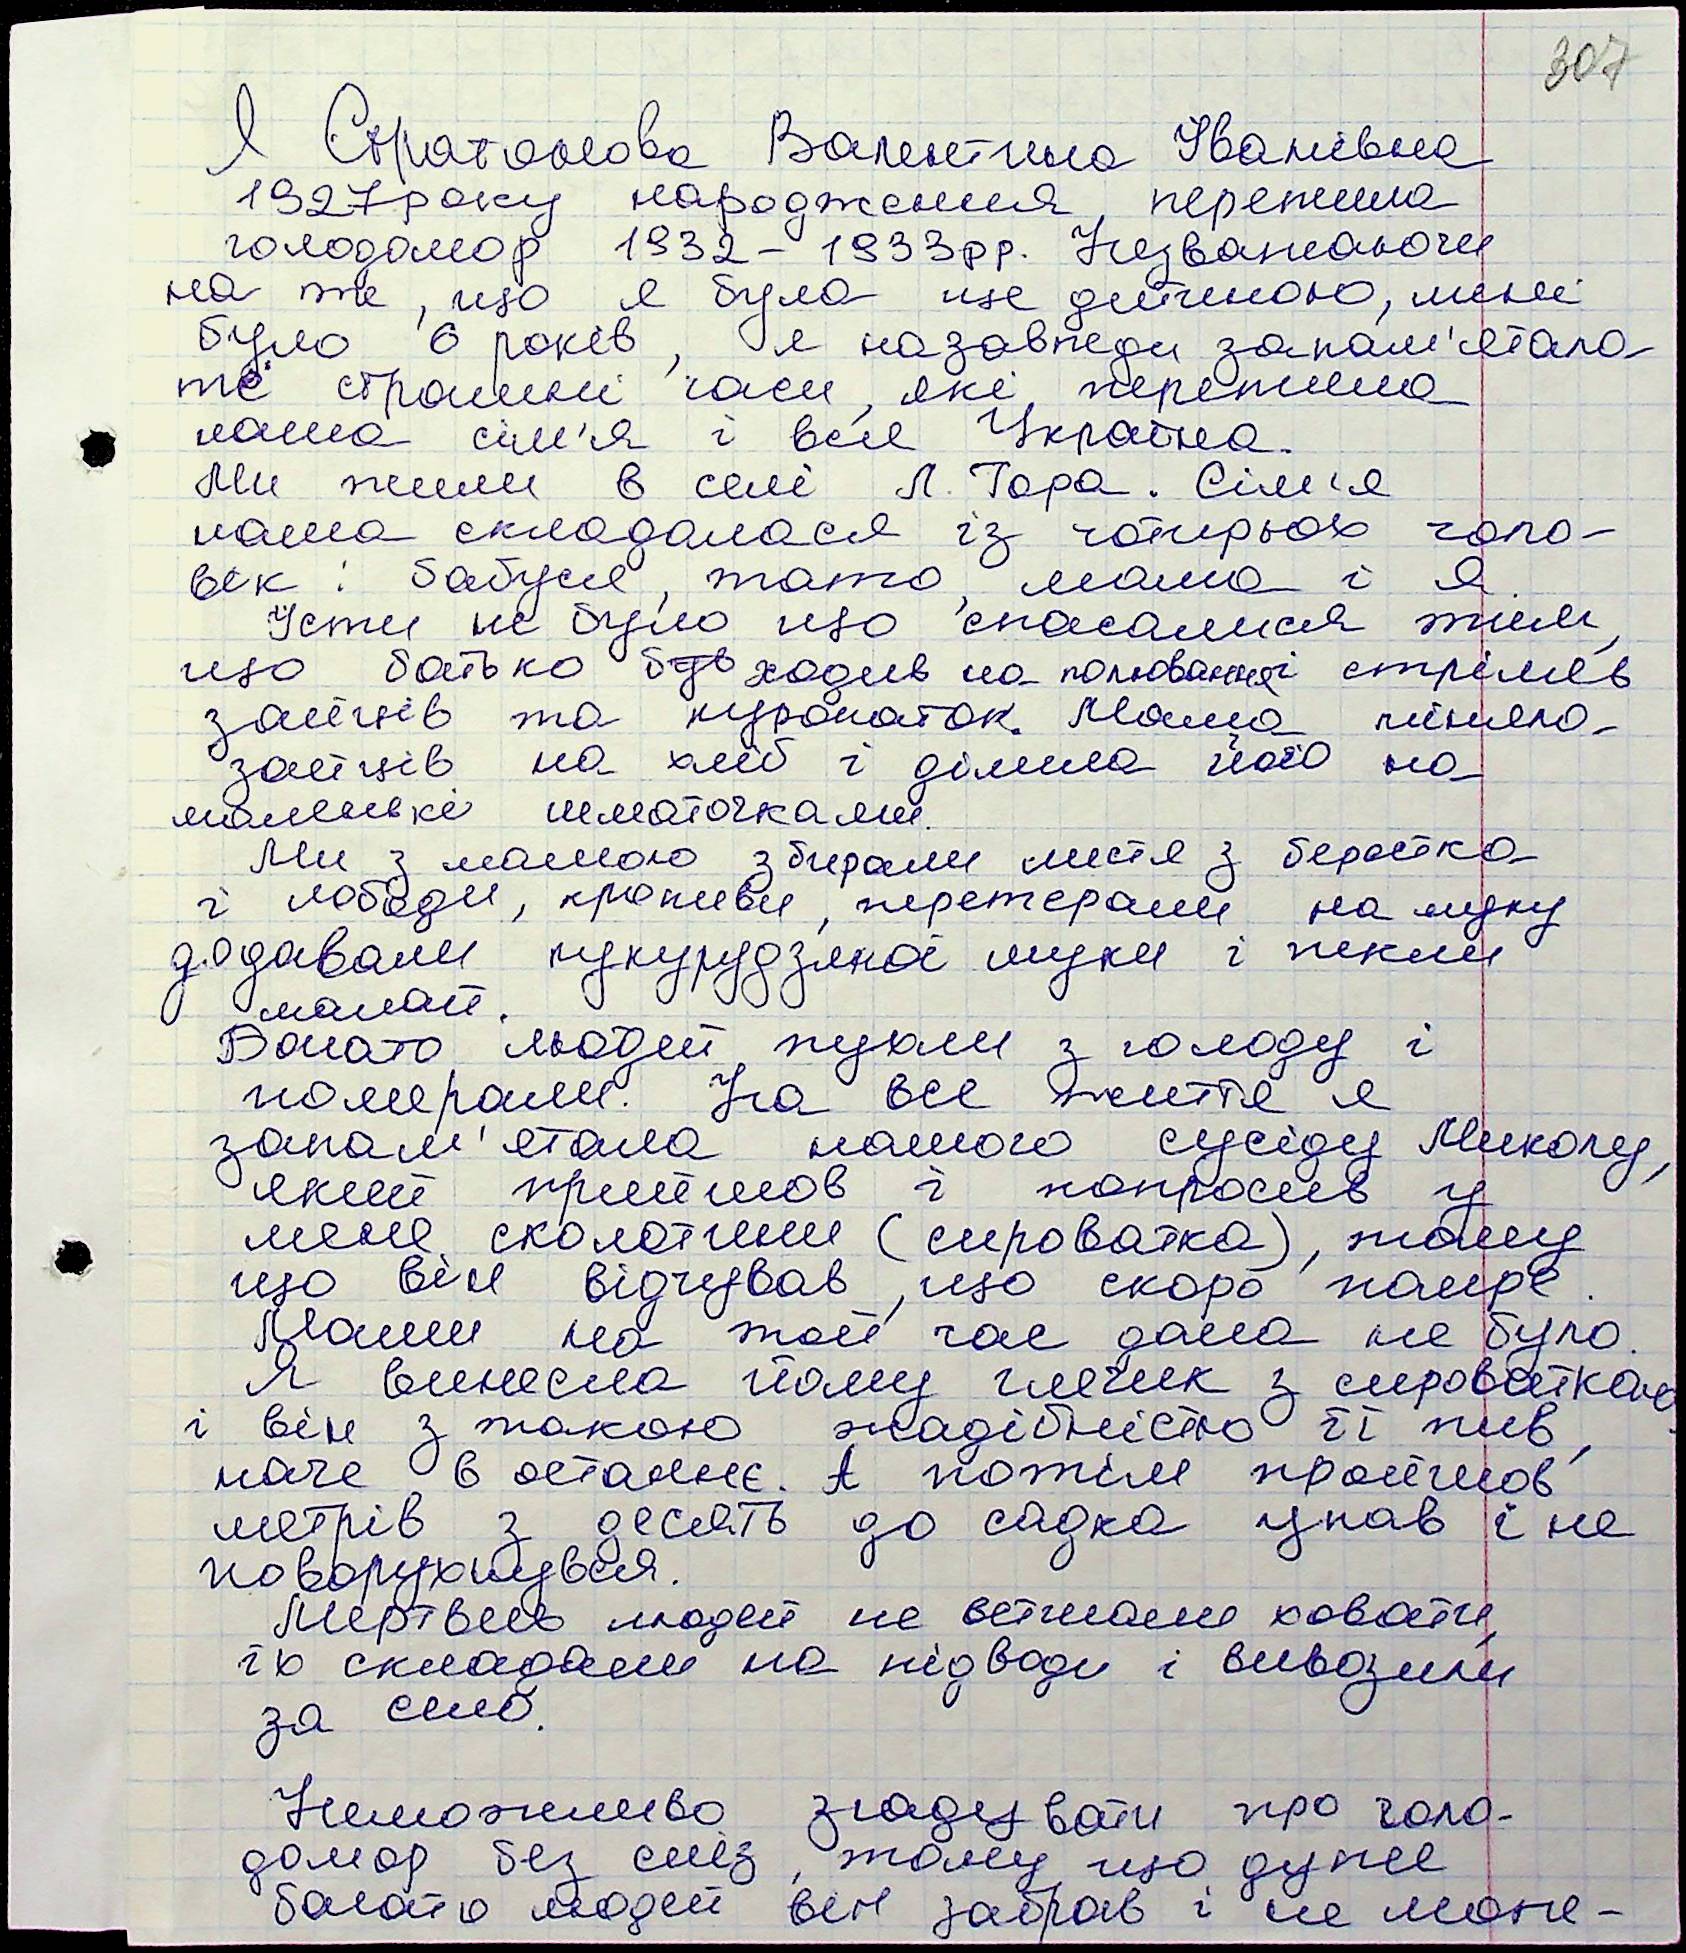 307
Я Стратонова Валентина Іванівна
1927 року народження, пережила
голодомор 1932 – 1933 рр. Незважаючи
на те, що я була ще дитиною, мені
було 6 років, я назавжди запам'ятала
ті страшні часи, які пережила
наша сім'я і вся Україна.
Ми жили в селі Л. Гора. Сім'я
наша складалася із чотирьох чоло-
вік: бабуся, тато, мама і я.
Їсти не було що спасалися тим,
що батько був ходив на полювання і стріляв
зайців та куропаток. Мама міняла
зайців на хліб і ділила його на
маленькі шматочками.
Ми з мамою збирали листя з берестка
і лободи, кропиви, перетерали на муку
додавали кукурудзяної муки і пекли
малай.
Богато людей пухли з голоду і
померали. На все життя я
запам'ятала нашого сусіду Миколу,
який прийшов і попросив у
мене сколотини (сироватка), тому
що він відчував, що скоро помре.
Мами на той час дома не було.
Я винесла йому глечик з сироваткою
і він з такою жадібністю її пив,
наче в останнє. А потім пройшов
метрів з десять до садка упав і не
поворухнувся.
Мертвих людей не встигали ховати,
їх складали на підводи і вивозили
за село.
Неможливо згадувати про голо-
домор без сліз, тому що дуже
багато людей він забрав і не може-